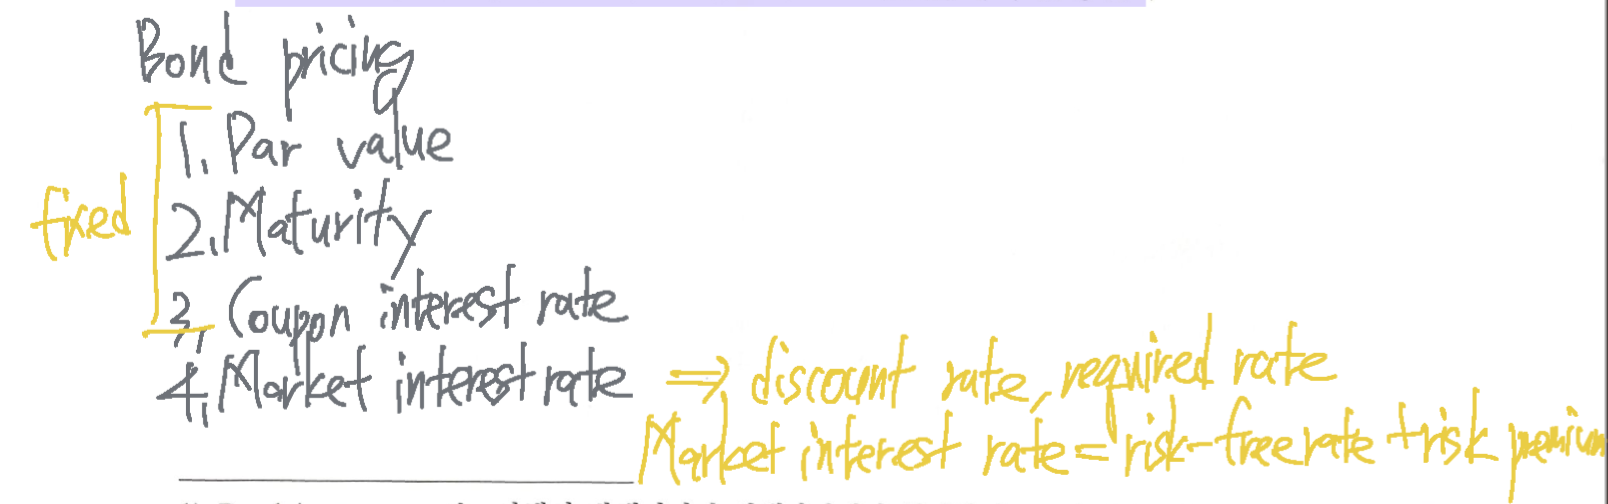 Bond pricing
1. Par value
fixed
2. Maturity
3. Coupon interest rate
4. Market interest rate ⇒ discount rate, required rate
Market interest rate = risk-free rate + risk premium